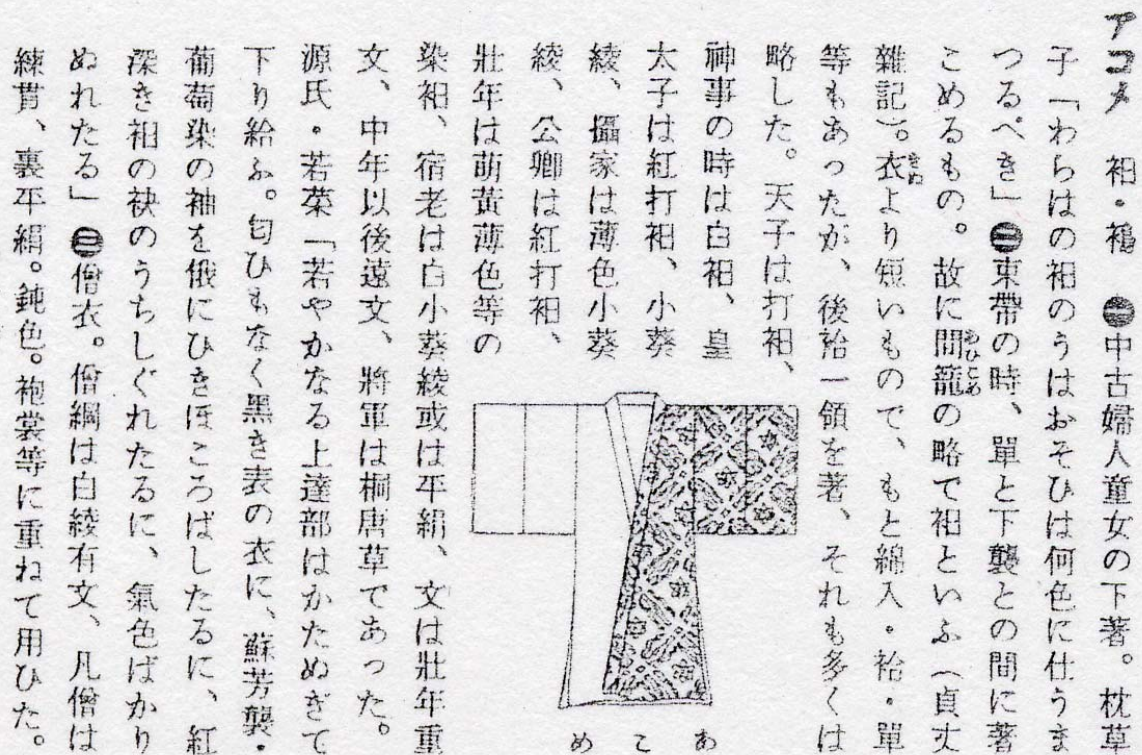 アコメ 袙・衵 ㊀中古婦人童女の下著。枕草
子「わらはの袙のうはおそひは何色に仕うま
つるべき」㊁束帶の時、單と下襲との間に著
こめるもの。故に間籠の略で袙といふ（貞丈
雜記）。衣より短いもので、もと綿入・袷・單
等もあったが、後袷一領を著、それも多くは
略した。天子は打袙、
神事の時は白袙、皇
太子は紅打袙、小葵
綾、攝家は薄色小葵
綾、公卿は紅打袙、
壯年は萌黃薄色等の
染袙、宿老は白小葵綾或は平絹、文は壯年重
文、中年以後遠文、將軍は桐唐草であった。
源氏・若菜「若やかなる上達部はかたぬぎて
下り給ふ。匂ひもなく黑き表の衣に、蘇芳襲・
葡萄染の袖を俄にひきほころばしたるに、紅
深き袙の袂のうちしぐれたるに、氣色ばかり
ぬれたる」㊂僧衣。僧綱は白綾有文、凡僧は
練貫、裏平絹。鈍色。袍裳等に重ねて用ひた。
あこめ